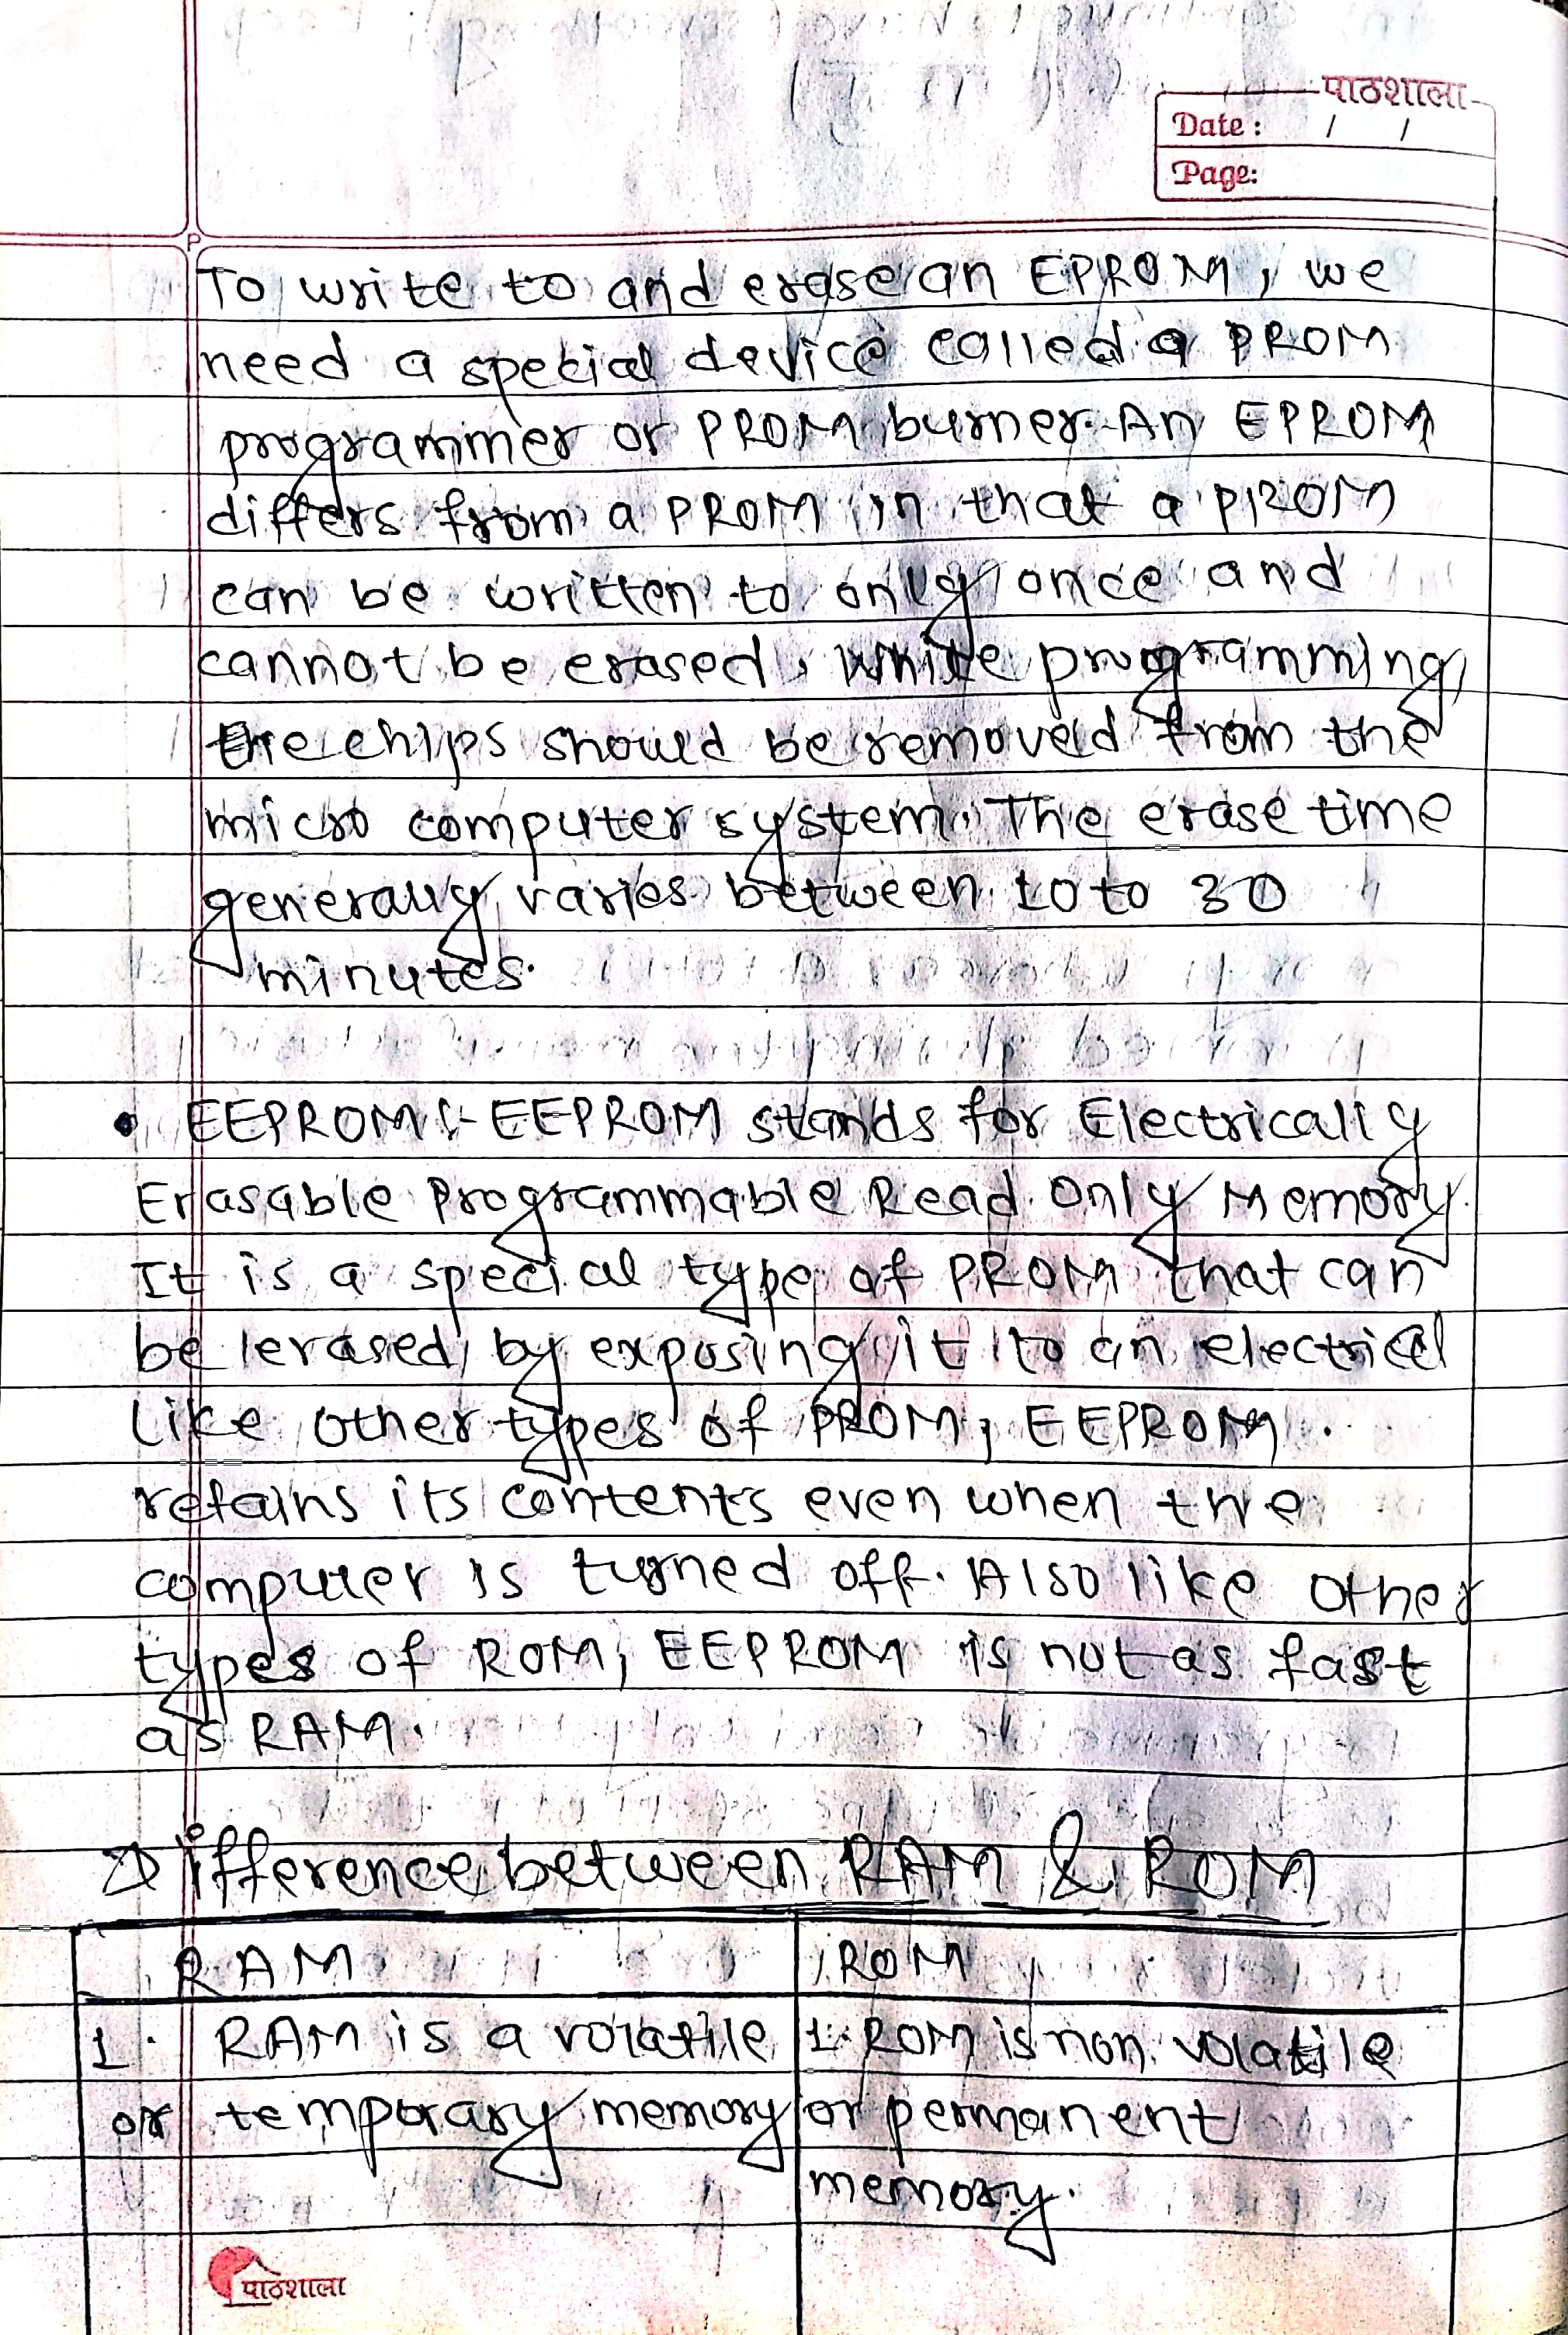 पाठशाला
Date : / /
Page:
To write to and erase an EPROM, we
need a special device called a PROM
programmer or PROM burner. An EPROM
differs from a PROM in that a PROM
can be written to only once and
cannot be erased. While programming,
the chips should be removed from the
micro computer system. The erase time
generally varies between 10 to 30
minutes.
• EEPROM :- EEPROM stands for Electrically
Erasable Programmable Read Only Memory.
It is a special type of PROM that can
be erased by exposing it to an electrical
like other types of PROM, EEPROM
retains its contents even when the
computer is turned off. Also like other
types of ROM, EEPROM is not as fast
as RAM.
Difference between RAM & ROM
RAM ROM
1. RAM is a volatile 1. ROM is non volatile
or temporary memory or permanent
memory.
पाठशाला